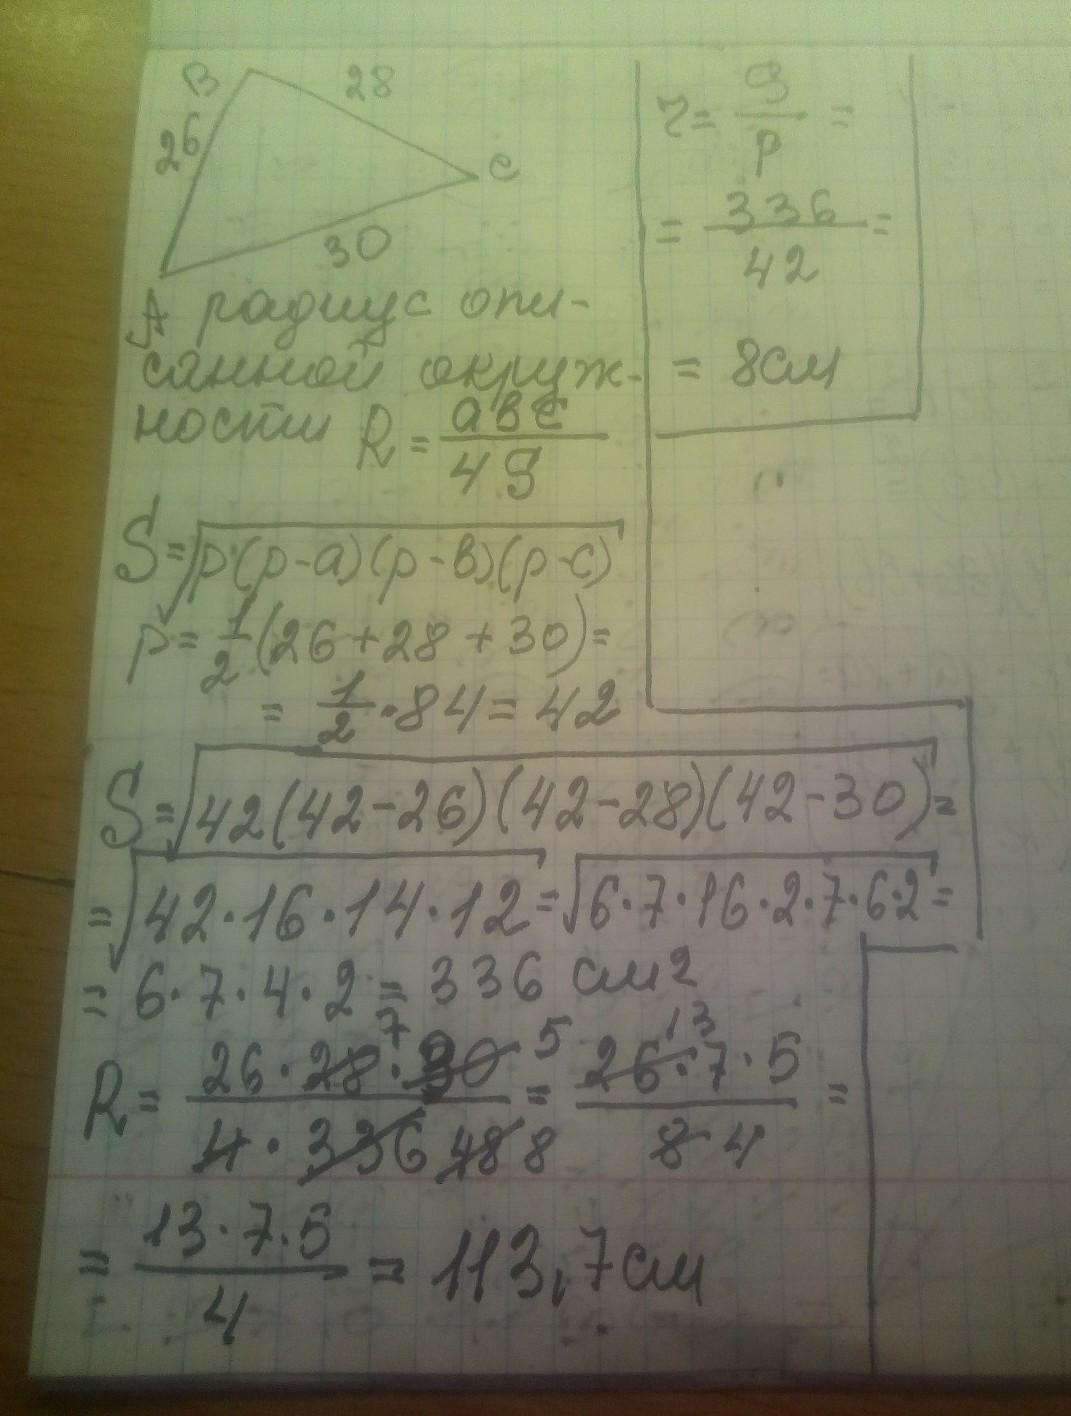 B 28
26 C
30
A радиус опи-
санной окруж-
ности R = abc / 4S
S = √p(p-a)(p-b)(p-c)
p = 1/2 (26 + 28 + 30) =
= 1/2 · 84 = 42
S = √42(42-26)(42-28)(42-30) =
= √42·16·14·12 = √6·7·16·2·7·6·2 =
= 6·7·4·2 = 336 см2
R = 26·28 7·30 5 / 4·336 48 8 = 26 13·7·5 / 8 4 =
= 13·7·5 / 4 = 113,7см
r = S / p =
= 336 / 42 =
= 8см